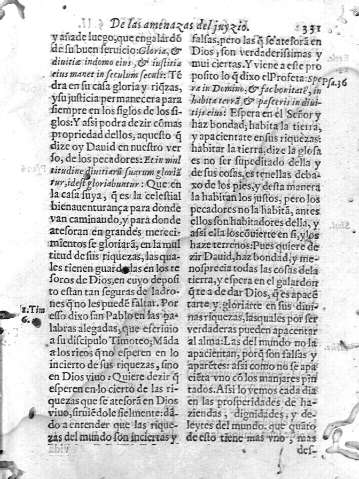 De las amenazas del juyzio. 331
y añade luego, que engalardó
de su buen seruicio: Gloria, &
diuitiæ indomo eius, & iustitia
eius manet in seculum seculi: Té
dra en su casa gloria y riqzas,
y su justicia permanecera para
siempre en los siglos de los si-
glos: Y assi podra dezir cómas
propriedad dellos, aquesto q̃
dize oy Dauid en nuestro ver
so, de los pecadores: Et in mul
titudine diuitiarũ suarum gloriã
tur, idest gloriabuntur: Que en
la casa suya, q̃ es la celestial
bienauenturança para donde
van caminando, y para donde
atesoran en grandes mereci-
mientos se gloriarã, en la mul
titud de sus riquezas, las qua-
les tienen guardadas en los te
soros de Dios, en cuyo deposi
to estan tan seguras de ladro-
nes q̃ no les puede faltar. Por
1. Tim 6.
esso dixo san Pablo en las pa-
labras alegadas, que escriuio
a su discipulo Timoteo; Máda
a los ricos q̃ no esperen en lo
incierto de sus riquezas, sino
en Dios viuo: Quiere dezir q̃
esperen en lo cierto de las ri-
quezas que se atesorã en Dios
viuo, siruiédole fielmente: dã-
do a entender que las riquezas
zas del mundo son inciertas y
falsas, pero las q̃ se atesorã en
Dios, son verdaderissimas y
mui ciertas. Y viene a este pro
posito lo q̃ dixo el Profeta: Spe
Psa. 36
ra in Domino, & fac bonitatẽ, in
habita terrã & pasceris in diui
tijs eius: Espera en el Señor y
haz bondad, habita la tierra,
y apacientate en sus riquezas:
habitar la tierra, dize la glosa
es no ser supeditado della y
de sus cosas, es tenellas deba-
xo de los pies, y desta manera
la habitan los justos, pero los
pecadores no la habitã, antes
ellos son habitadores della, y
assi ella los cõuierte en si, y los
haze terrenos: Pues quiere de
zir Dauid, haz bondad, y me-
nosprecia todas las cosas dela
tierra, y espera en el galardon
q̃ te a de dar Dios, q̃ es apacẽ
tarte y gloriarte en sus diui-
nas riquezas, las quales por ser
verdaderas pueden apacentar
al alma: Las del mundo no la
apacientan, porq̃ son falsas y
aparẽtes: assi como no se apa
ciẽta vno cõ los manjares pin
tados. Assi lo vemos cada dia
en las prosperidades de ha-
ziendas, dignidades, y de-
leytes del mundo. que quãto
de esto tiene mas vno, mas
des-